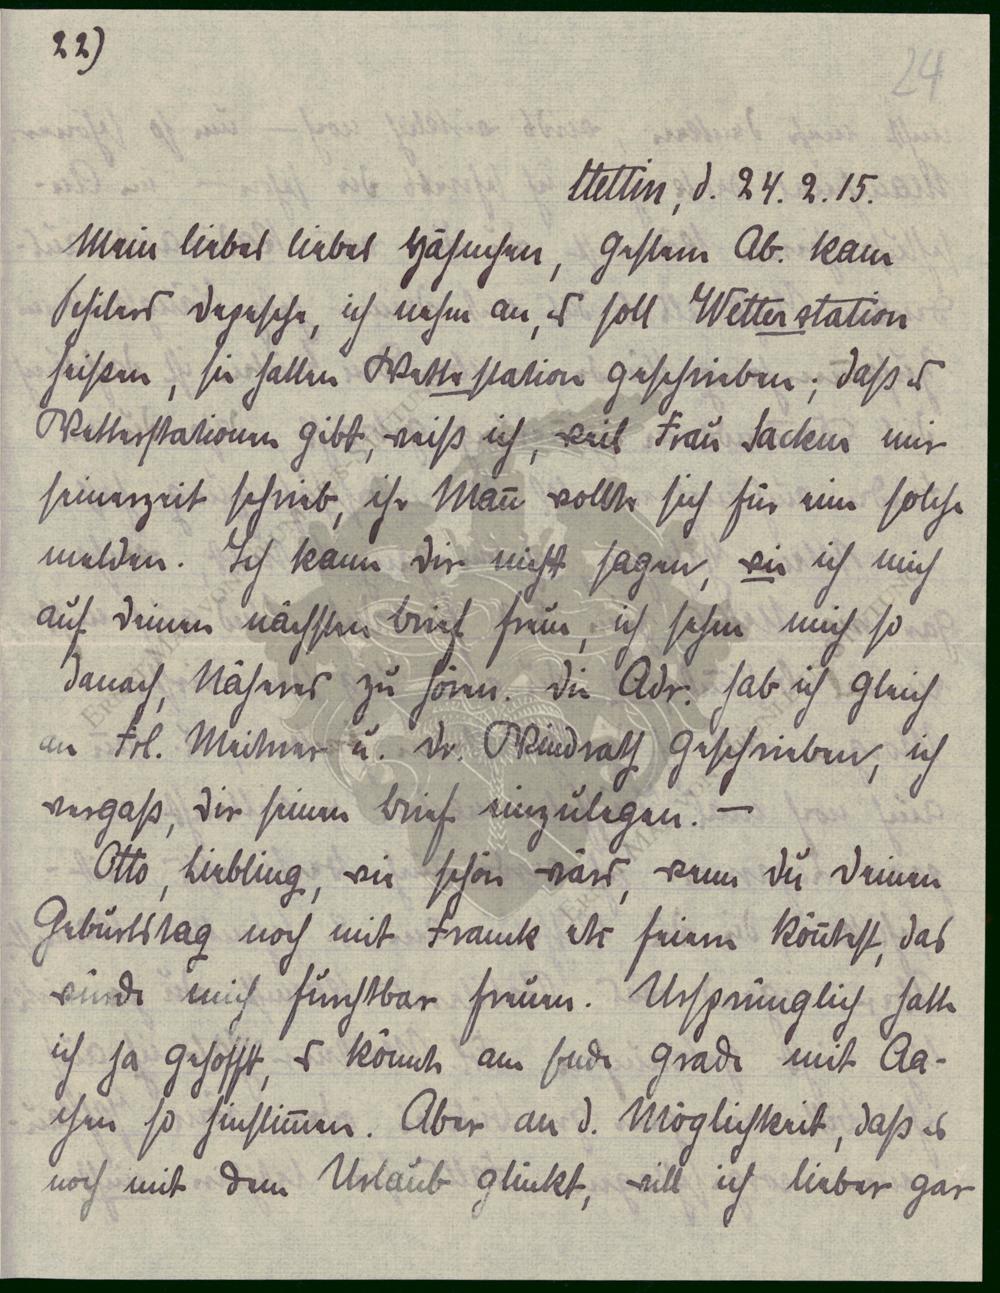 22)
24
Stettin, d. 24. 2. 15.
Mein liebes liebes Hähnchen, gestern Ab. kam
Schilers Depesche, ich nehm an, es soll Wetterstation
heißen, sie hatten Wettestation geschrieben; daß es
Wetterstationen gibt, weiß ich, weil Frau Sackur mir
seinerzeit schrieb, ihr Mañ wollte sich für eine solche
melden. Ich kann Dir nicht sagen, wie ich mich
auf Deinen nächsten Brief freue, ich sehne mich so
danach, Näheres zu hören. Die Adr. hab ich gleich
an Frl. Meitner u. Dr. Windrath geschrieben, ich
vergaß, Dir seinen Brief einzulegen. —
Otto, Liebling, wie schön wärs, wenn Du Deinen
Geburtstag noch mit Franck etc feiern köñtest, das
würde mich furchtbar freuen. Ursprünglich hatte
ich ja gehofft, es könnte am Ende grade mit Aa-
chen so hinstim̄en. Aber an d. Möglichkeit, daß es
noch mit dem Urlaub glückt, will ich lieber gar